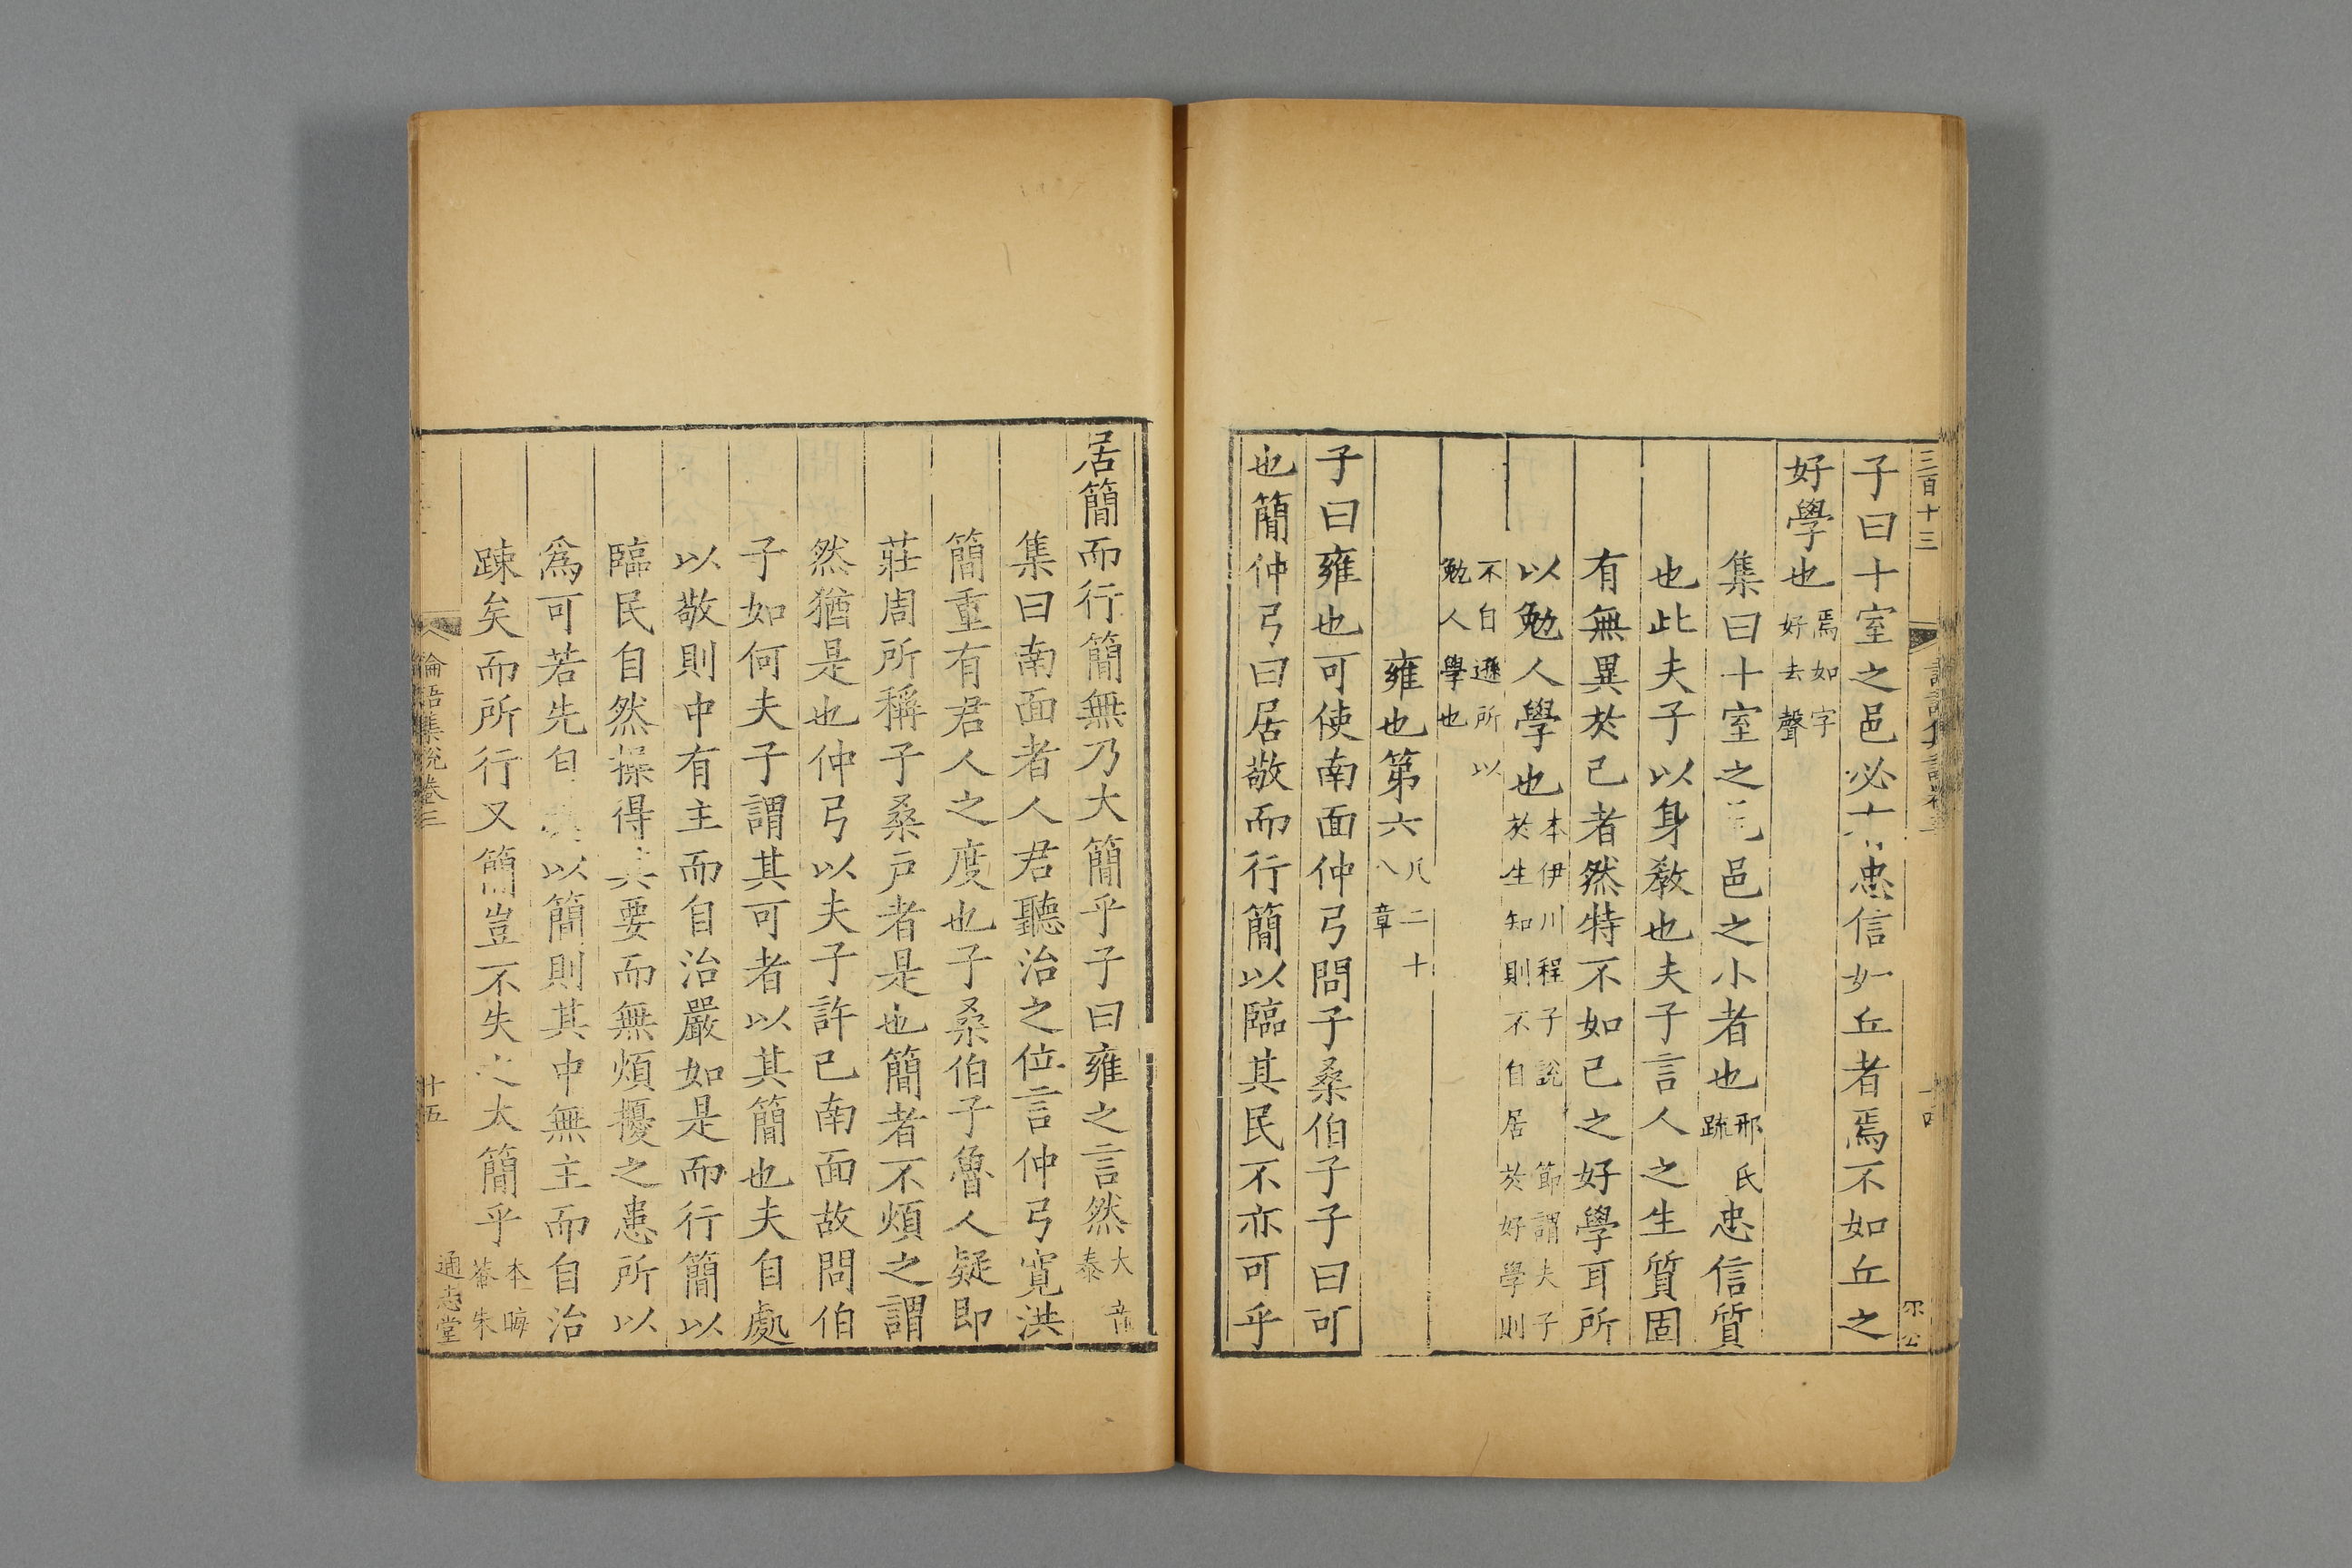 三百十三
子曰十室之邑必有忠信如丘者焉不如丘之
好學也焉如字好去聲
集曰十室之邑邑之小者也邢氏疏忠信質
也此夫子以身教也夫子言人之生質固
有無異於己者然特不如己之好學耳所
以勉人學也本伊川程子說節謂夫子於生知則不自居於好學則
不自遜所以勉人學也
雍也第六凡二十八章
子曰雍也可使南面仲弓問子桑伯子子曰可
也簡仲弓曰居敬而行簡以臨其民不亦可乎
居簡而行簡無乃大簡乎子曰雍之言然大音泰
集曰南面者人君聽治之位言仲弓寬洪
簡重有君人之度也子桑伯子魯人疑即
莊周所稱子桑戶者是也簡者不煩之謂
然猶是也仲弓以夫子許已南面故問伯
子如何夫子謂其可者以其簡也夫自處
以敬則中有主而自治嚴如是而行簡以
臨民自然操得其要而無煩擾之患所以
為可若先自以簡則其中無主而自治
踈矣而所行又簡豈不失之太簡乎本晦菴朱
論語集說卷三 十五 通志堂